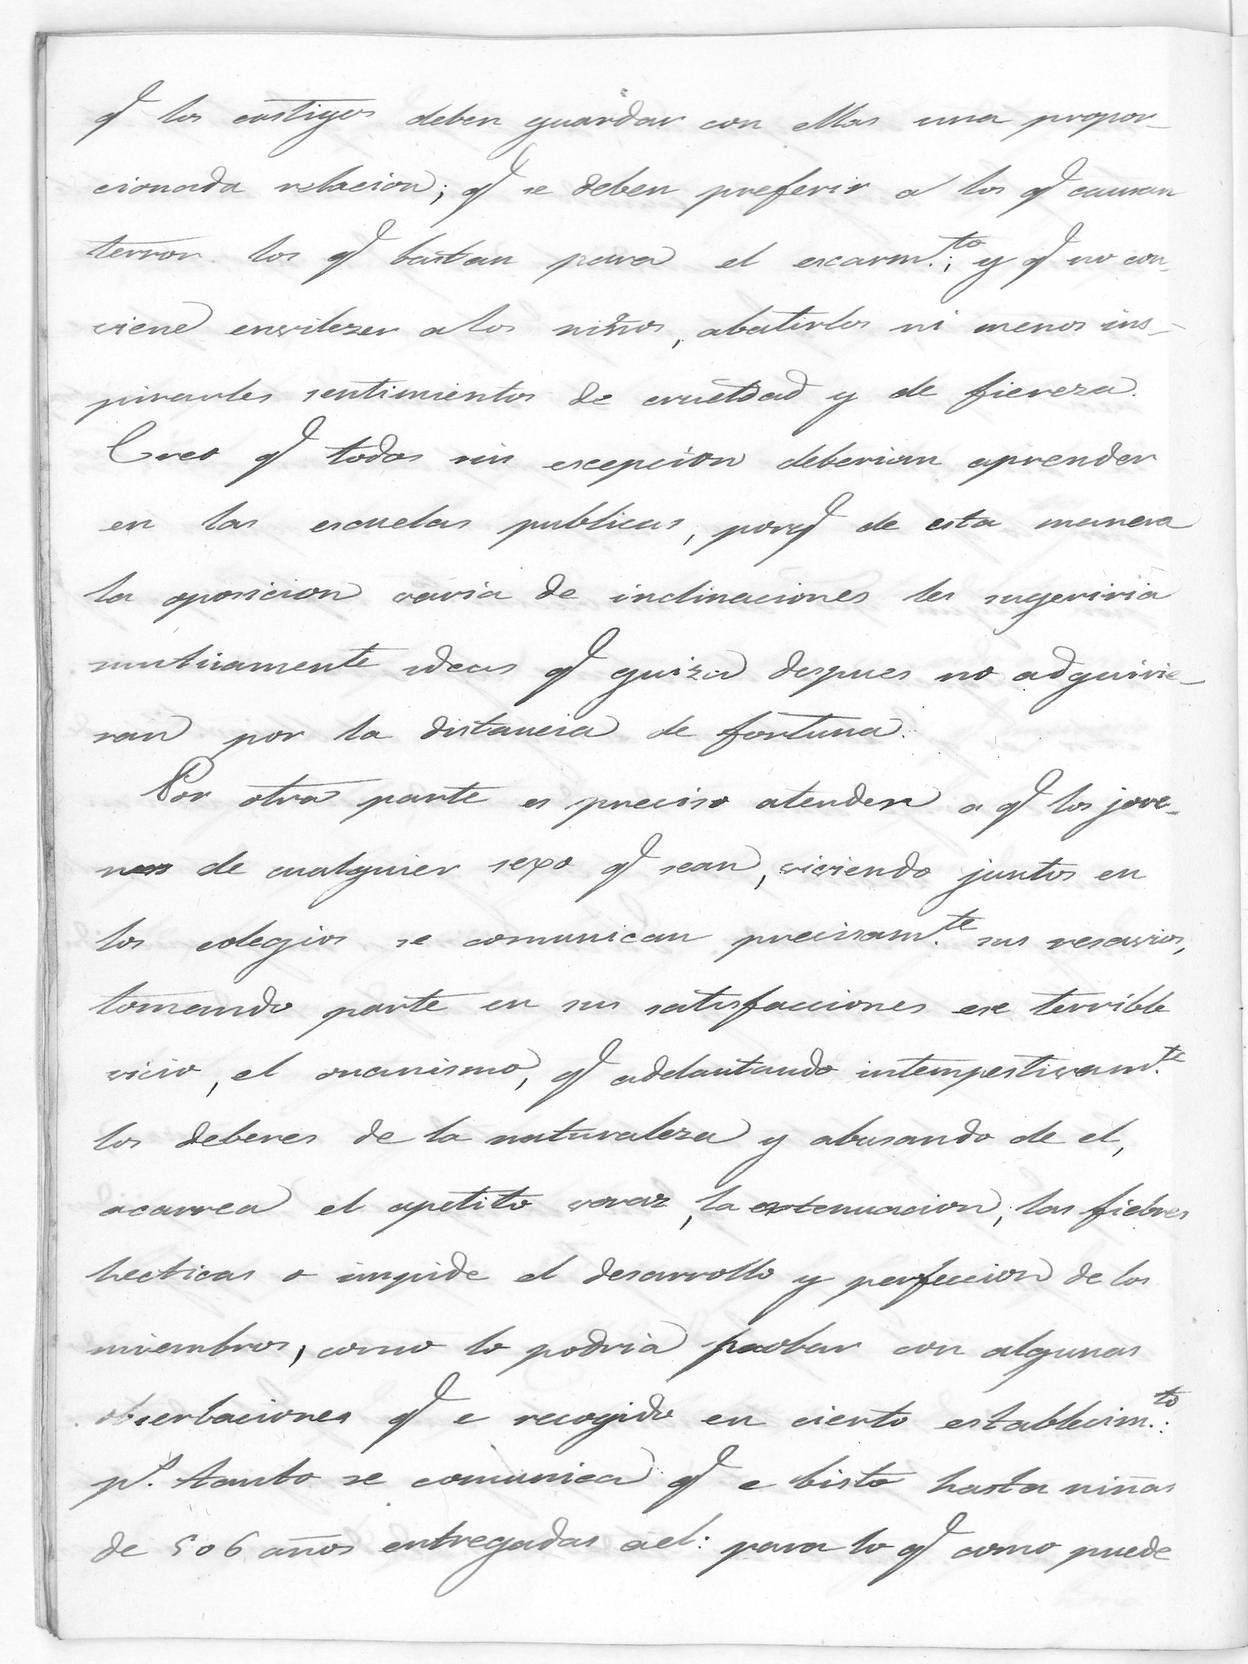 q.e los castigos deben guardar con ellas una propor-
cionada relacion; q.e se deben preferir a los q.e causan
terror los q.e bastan para el escarm.to; y q.e no con-
viene envilezer a los niños, abatirlos ni menos ins-
pirarles sentimientos de crueldad y de fiereza.
Creo q.e todos sin escepcion deberian aprender
en las escuelas publicas, porq.e de esta manera
la oposicion varia de inclinaciones les sugeriria
mutuamente ideas q.e quiza despues no adquirie-
ran por la distancia de fortuna.
Por otra parte es preciso atender a q.e los jove-
nes de cualquier sexo q.e sean, viviendo juntos en
los colegios se comunican precisam.te sus resavios,
tomando parte en sus satisfacciones ese terrible
vicio, el onanismo, q.e adelantando intempestivam.te
los deberes de la naturaleza y abusando de el,
acarrea el apetito voraz, la extenuacion, las fiebres
hecticas o impide el desarrollo y perfeccion de los
miembros, como lo podria probar con algunas
obserbaciones q.e e recogido en cierto establecim.to:
p.s tanto se comunica q.e e bisto hasta niñas
de 5 o 6 años entregadas a el: para lo q.e como puede